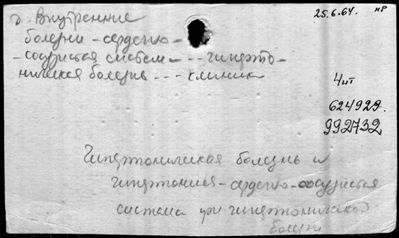 г. Внутренние
болезни - сердечно -
- сосудистая система - - - гиперто-
ническая болезнь - - - клиника
25.6.64. нр
4ит
624929.
992732
Гипертоническая болезнь и
гипертония - сердечно-сосудистая
система при гипертонической
болезни